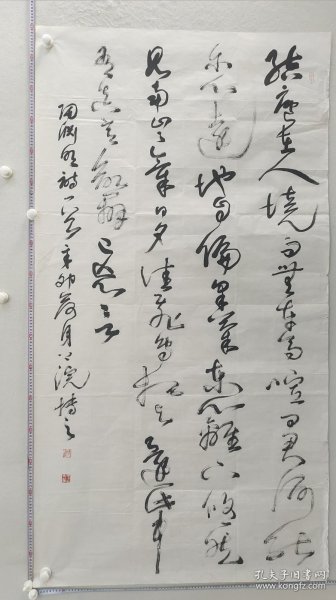 結廬在人境而無車馬喧問君何能
尔心遠地自偏采菊東籬下悠然
見南山山氣日夕佳飛鳥相與還此中
有真意欲辨已忘言
陶渊明詩一首辛卯荷月上浣
孔夫子旧书网